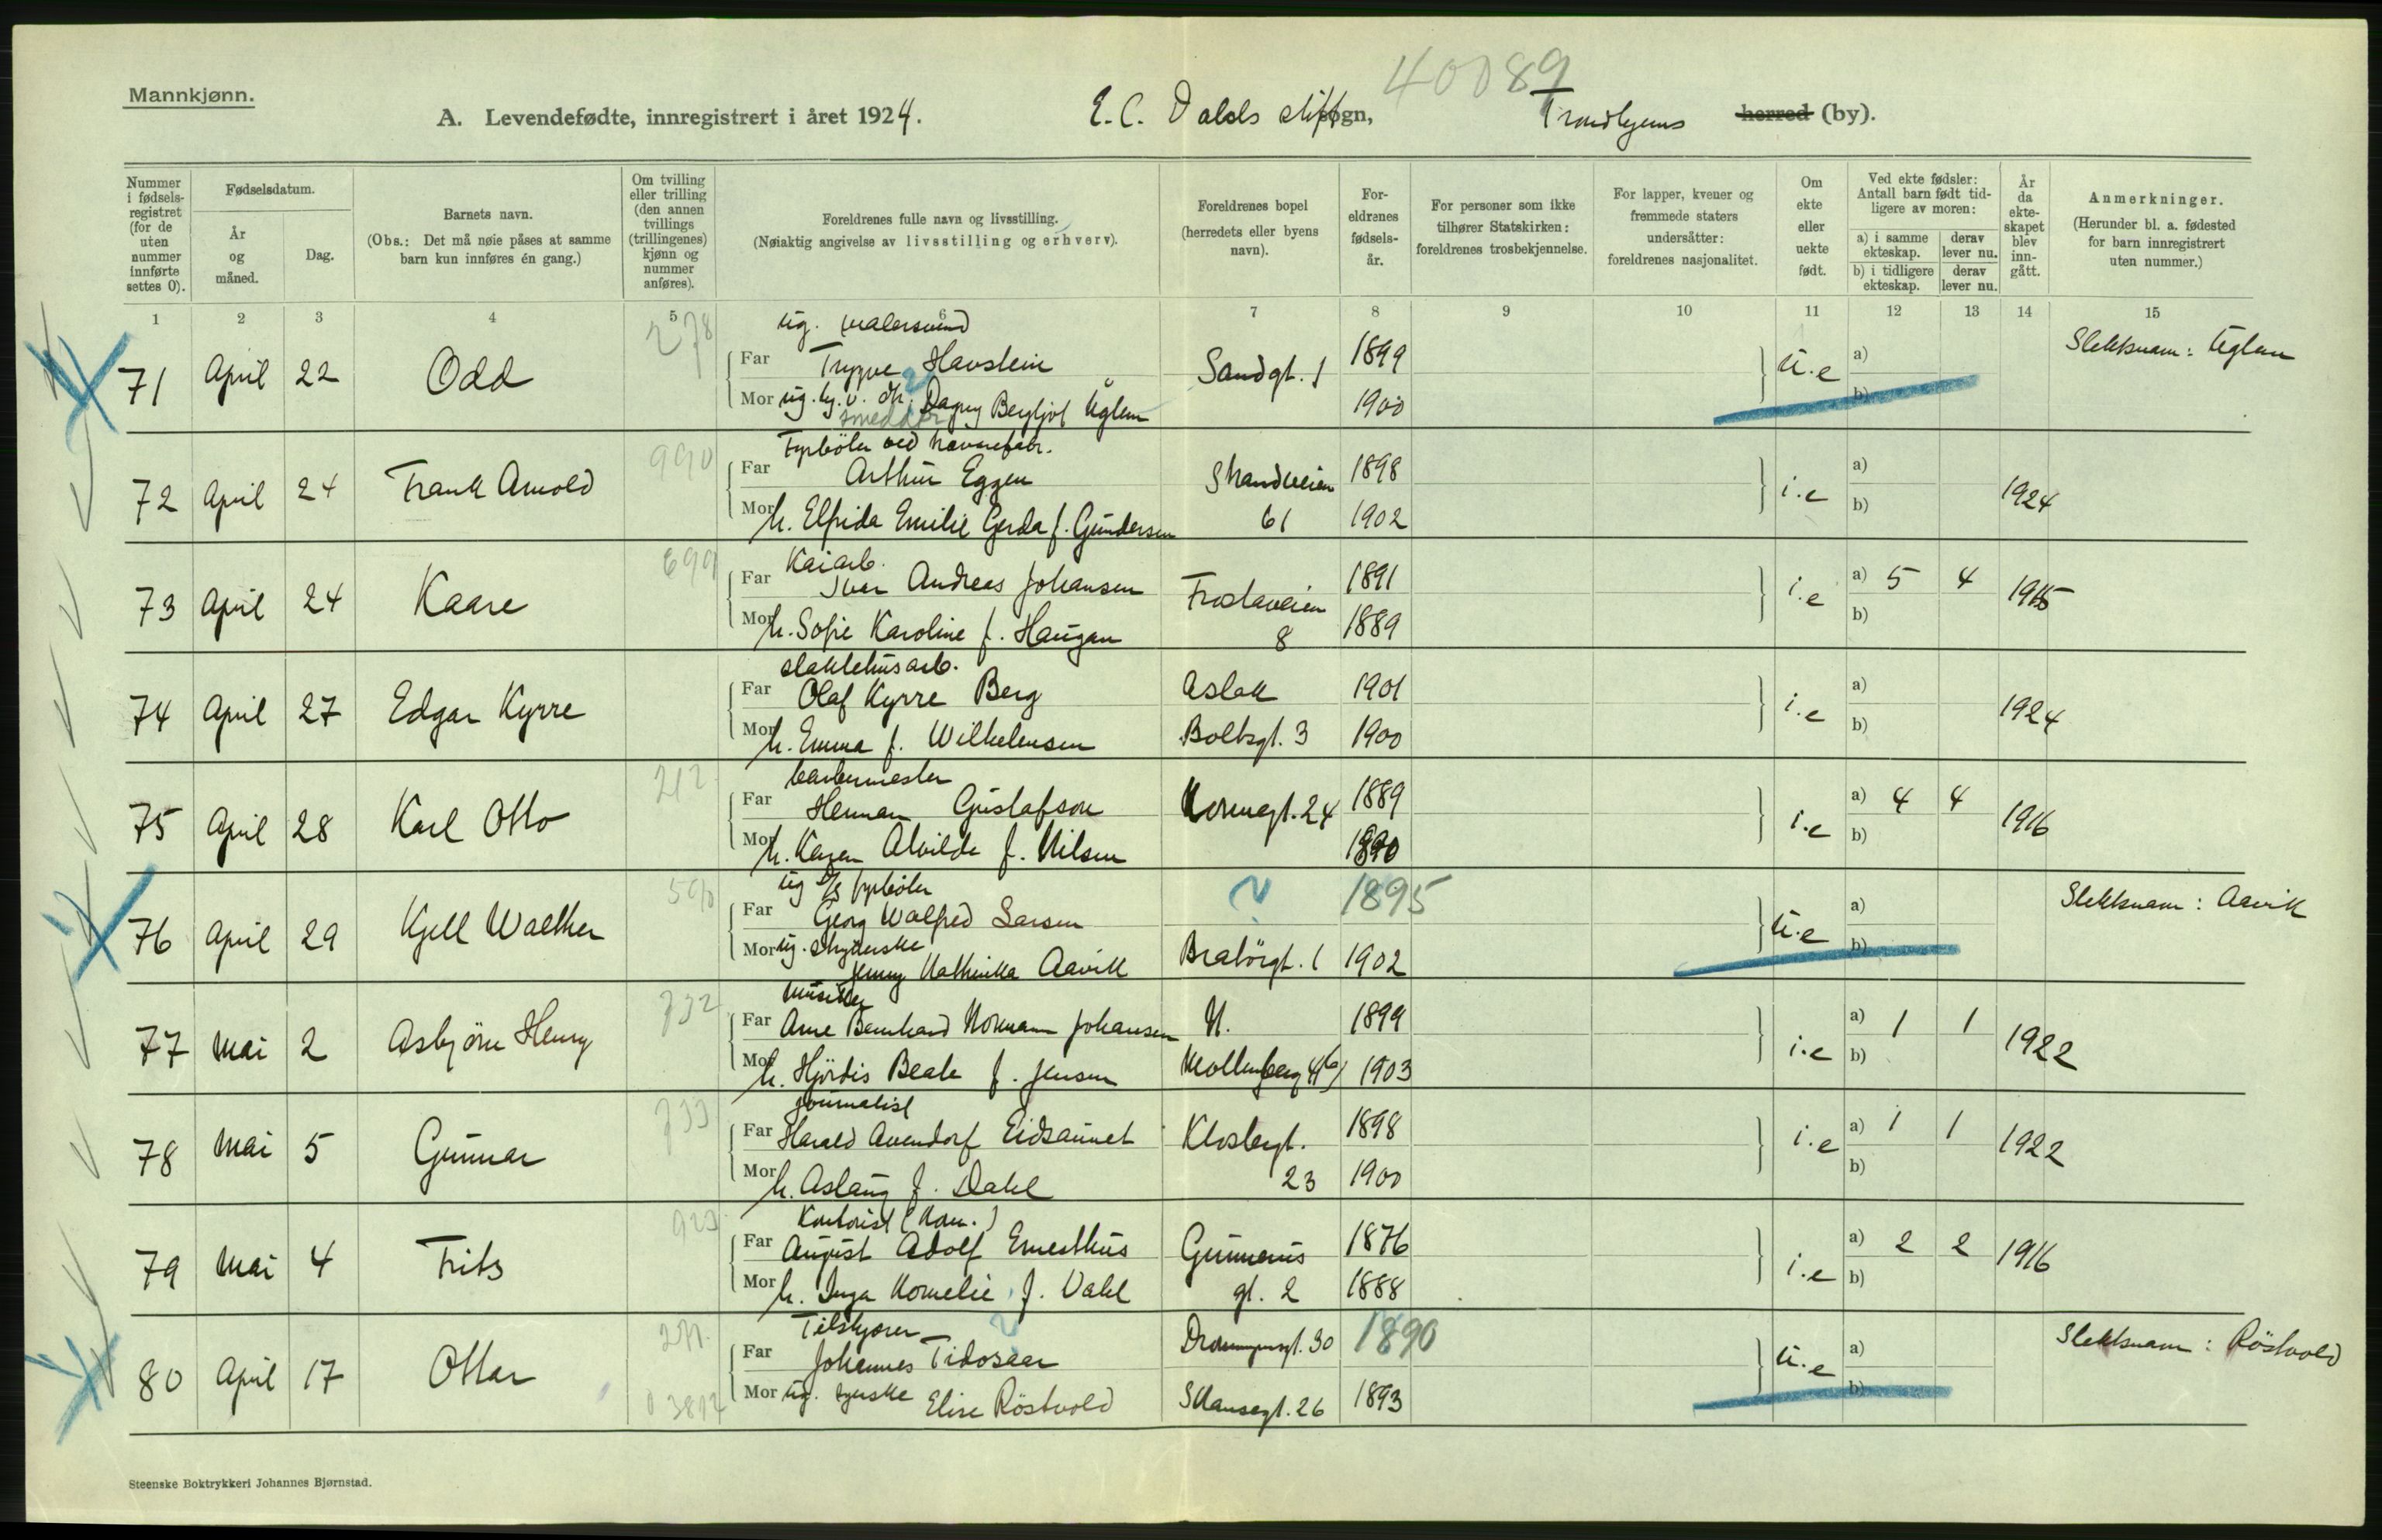 40089
Mannkjønn.
A. Levendefødte, innregistrert i året 1924. E. C. Dahls stift sogn, Trondhjems herred (by).
Nummer i fødselsregistret (for de uten nummer innførte settes 0).
Fødselsdatum.
År og måned.
Dag.
Barnets navn.
(Obs.: Det må nøie påses at samme barn kun innføres én gang.)
Om tvilling eller trilling (den annen tvillings (trillingenes) kjønn og nummer anføres).
Foreldrenes fulle navn og livsstilling.
(Nøiaktig angivelse av livsstilling og erhverv).
Foreldrenes bopel (herredets eller byens navn).
Foreldrenes fødselsår.
For personer som ikke tilhører Statskirken: foreldrenes trosbekjennelse.
For lapper, kvener og fremmede staters undersåtter: foreldrenes nasjonalitet.
Om ekte eller uekte født.
Ved ekte fødsler: Antall barn født tidligere av moren:
a) i samme ekteskap.
derav lever nu.
b) i tidligere ekteskap.
derav lever nu.
År da ekteskapet blev inngått.
Anmerkninger.
(Herunder bl. a. fødested for barn innregistrert uten nummer.)
1 2 3 4 5 6 7 8 9 10 11 12 13 14 15
278 ug. malersvend
71 April 22 Odd Far Trygve Havstein Sandgt. 1 1899 u.e a) Slektsnam: Uglem
Mor ug. Dagny Bergljot Uglem 1900 b)
990 Fyrbøter ved
72 April 24 Frank Arnold Far Arthur Eggen Strandveien 1898 i.e a) 1924
Mor h. Elfrida Emilie Gerda f. Gundersen 61 1902 b)
699 Kaiarb.
73 April 24 Kaare Far Ivar Andreas Johansen Frostaveien 1891 i.e a) 5 4 1915
Mor h. Sofie Karoline f. Haugan 8 1889 b)
slaktehusarb.
74 April 27 Edgar Kyrre Far Olaf Kyrre Berg Aslak 1901 i.e a) 1924
Mor h. Emma f. Wilhelmsen Boltsgt. 3 1900 b)
212 barbermester
75 April 28 Karl Otto Far Herman Gustafson 24 1889 i.e a) 4 4 1916
Mor h. Karen Alvilde f. Nilsen 1890 b)
ug D/S fyrbøter
76 April 29 Kjell Walther Far Georg Walfred Larsen ? 1895 u.e a) Slektsnam: Aavik
Mor ug. Jenny Kathinka Aavik Bratörgt. 1 1902 b)
732 musiker
77 Mai 2 Asbjörn Henry Far Arne Bernhard Norman Johansen N. 1899 i.e a) 1 1 1922
Mor h. Hjördis Beate f. Jensen Möllenberg 1903 b)
733 journalist
78 Mai 5 Gunnar Far Harald Avendorf Eidsaunet Klostergt. 1898 i.e a) 1 1 1922
Mor h. Aslaug f. Dahl 23 1900 b)
923 Kontorist (kom.)
79 Mai 4 Frits Far August Adolf Ernesthus Gunnerus 1876 i.e a) 2 2 1916
Mor h. Inga Kornelie f. Dahl gt. 2 1888 b)
271 Tilskjærer
80 April 17 Ottar Far Johannes Tidosaar 30 1890 u.e a) Slektsnam: Röstvold
Mor ug. syerske Elise Röstvold Skansegt. 26 1893 b)
Steenske Boktrykkeri Johannes Bjørnstad.